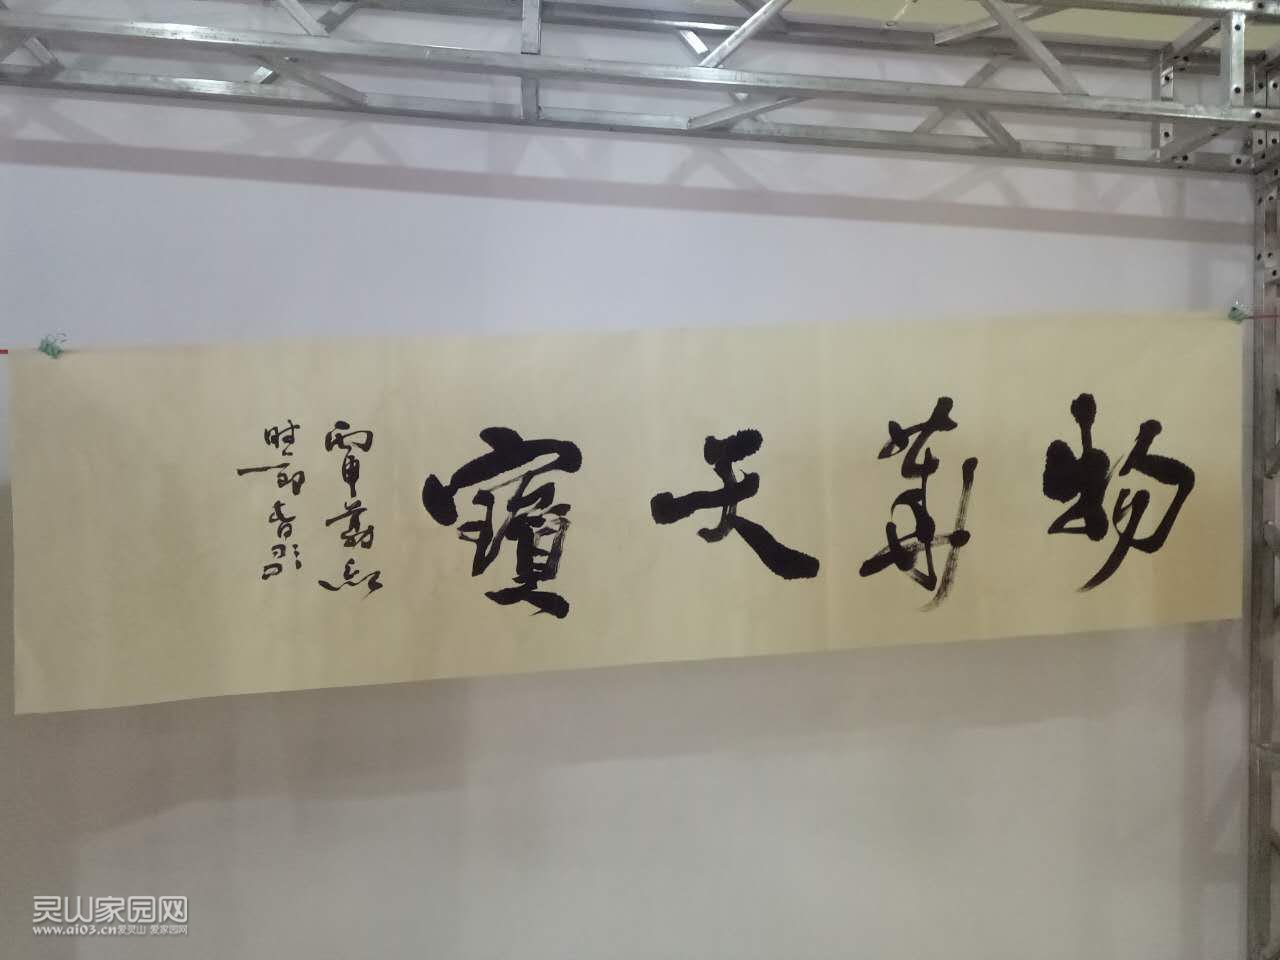 物華天寶
丙申
灵山家园网
www.ai03.cn爱灵山 爱家园网